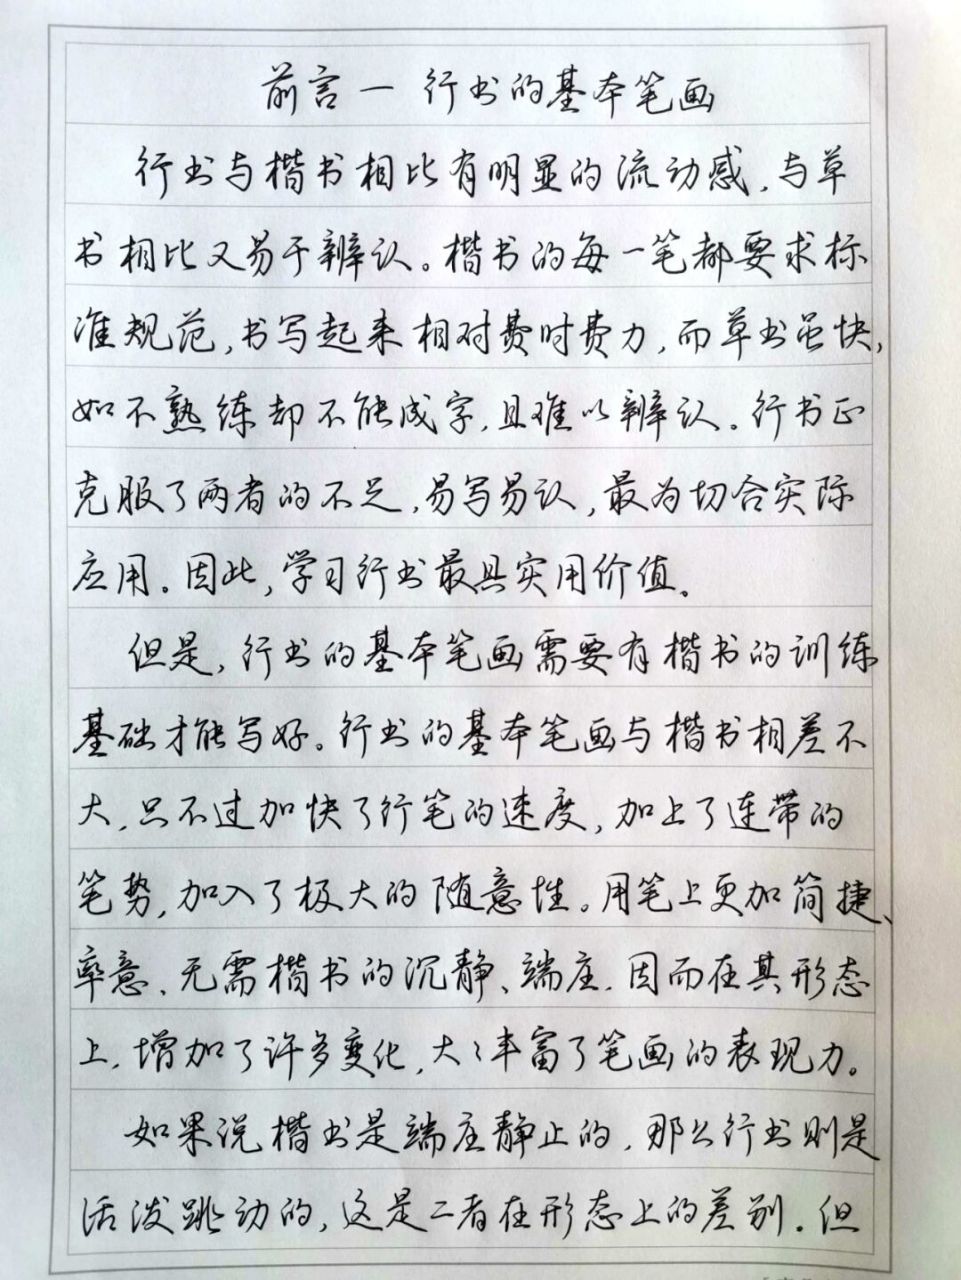 前言一 行书的基本笔画
行书与楷书相比有明显的流动感,与草
书相比又易于辨认。楷书的每一笔都要求标
准规范,书写起来相对费时费力,而草书虽快,
如不熟练却不能成字,且难以辨认。行书正
克服了两者的不足,易写易认,最为切合实际
应用。因此,学习行书最具实用价值。
但是,行书的基本笔画需要有楷书的训练
基础才能写好。行书的基本笔画与楷书相差不
大,只不过加快了行笔的速度,加上了连带的
笔势,加入了极大的随意性。用笔上更加简捷、
率意、无需楷书的沉静、端庄.因而在其形态
上,增加了许多变化,大々丰富了笔画的表现力。
如果说楷书是端庄静止的,那么行书则是
活泼跳动的,这是二者在形态上的差别。但